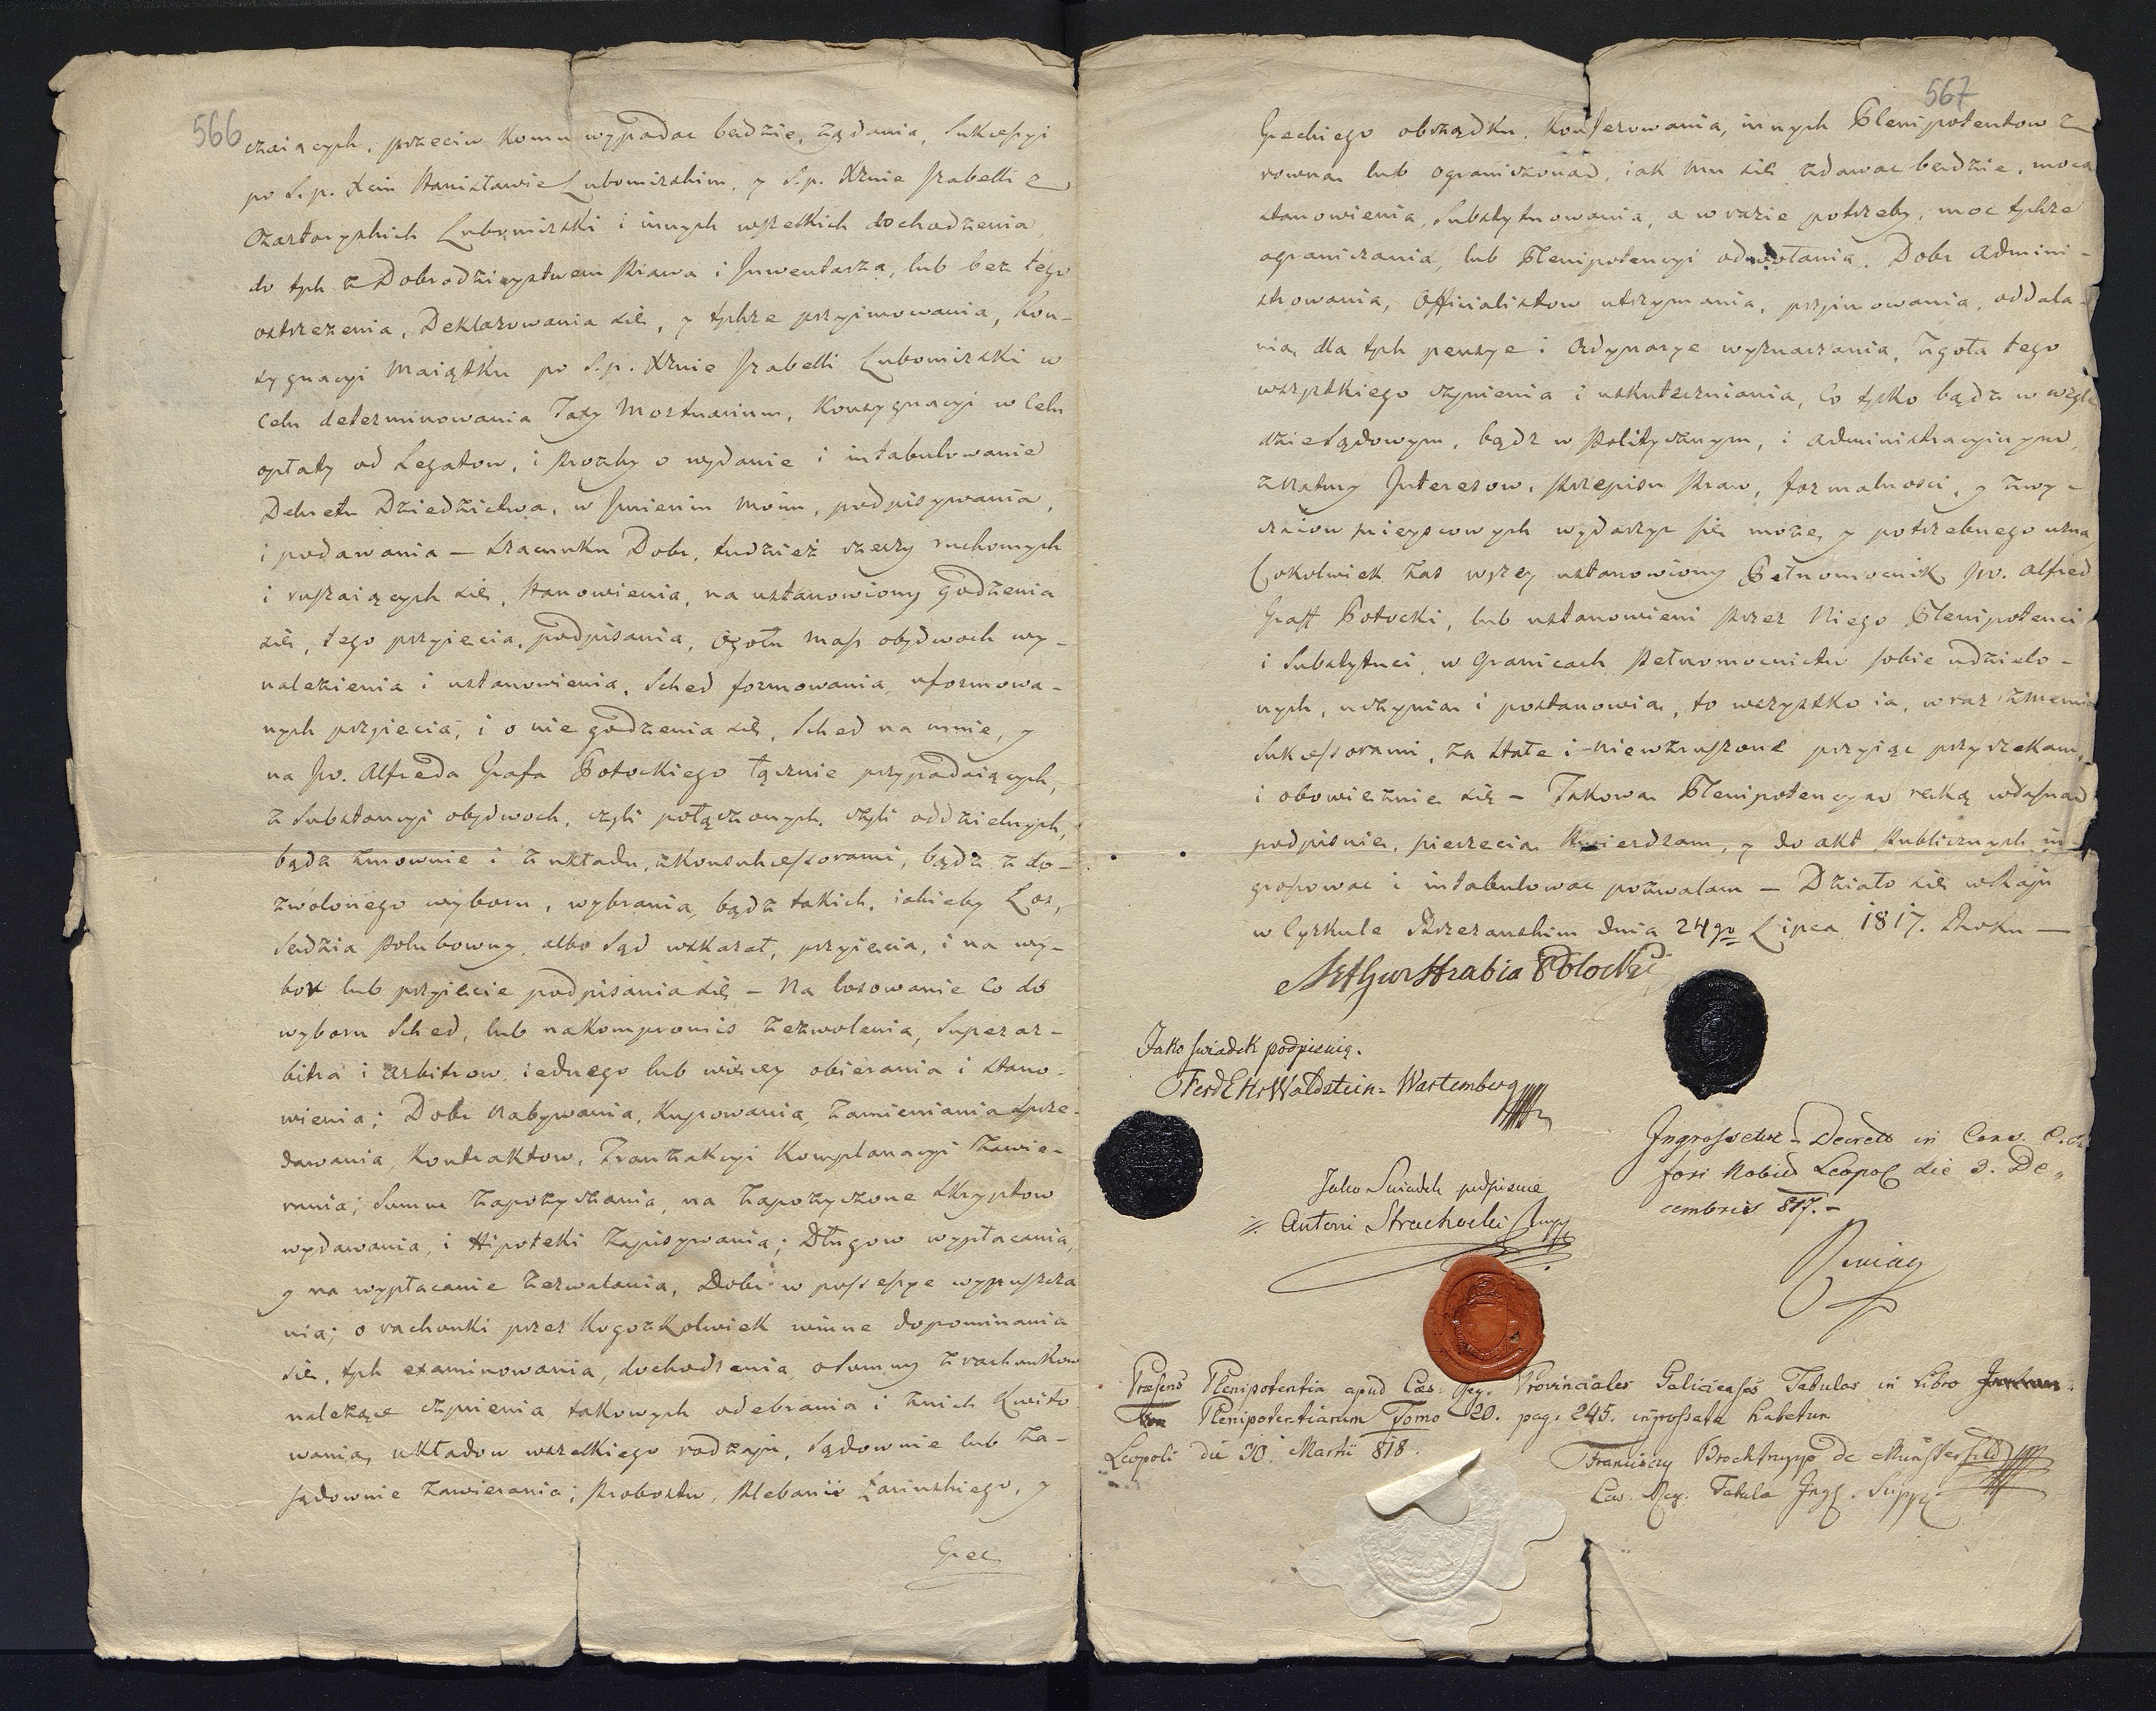 566
czaiących, przeciw komu wypadac będzie, żądania, Sukcessyi
po S.p. Xciu Stanisławie Lubomirskim, y S.p. Xżnie Izabelli z
Czartoryskich Lubomirski i innych wszelkich dochodzenia,
do tych z Dobrodzieystwem Prawa i Inwentarza, lub bez tego
ostrzezenia, Deklarowania się, y tychże przyimowania, Kon-
sygnacyi Maiątku po S.p. Xżnie Izabelli Lubomirski w
Celu determinowania Taxy Mortuarium, Konsygnacyi w Celu
opłaty od Legatow, i Prozby o wydanie i intabulowanie
Dekretu Dziedzictwa, w Imieniu Moim, podpisywania,
i podawania – Szacunku Dobr, tudzież rzeczy ruchomych
i ruszaiących się, Stanowienia, na ustanowiony godzenia
się, tego przyięcia, podpisania, Ogołu Mass obydwoch wy-
nalezienia i ustanowienia, Sched formowania, uformowa-
nych przyięcia, i o nie godzenia się, Sched na mnie, y
na Jw. Alfreda Grafa Potockiego łącznie przypadaiących,
z Substancyi obydwoch, czyli połączonych, czyli oddzielnych,
bądz umownie i z układu, z Konsukcessorami, bądz z do-
zwolonego wyboru, wybrania, bądz takich, iakieby Los,
Sędzia Polubowny, albo Sąd wskazał, przyięcia, i na wy-
bor lub przyięcie podpisania się – Na losowanie Co do
wyboru Sched, lub na kompromis zezwolenia, Superar-
bitra i Arbitrow, iednego lub więcey obierania i stano-
wienia; Dobr Nabywania, Kupowania, Zamieniania Sprze-
dawania, Kontraktow, Tranzakcyi Komplanacyi Zawie-
rania; Summ Zapożyczania, na Zapożyczone Skryptow
wydawania, i Hipoteki Zapisywania; Długow wypłacania,
y na wypłacanie zezwalania, Dobr w possessye wypuszcza
nia; o rachunki przez Kogozkolwiek winne dopominania
się, tych examinowania, dochodzenia, o Summy z rachunkow
należące czynienia, takowych odebrania i z nich Kwito
wania, układow wszelkiego rodzaju, Sądownie lub Za-
sądownie Zawierania; Probostw, Plebanii Łacinskiego, y
Grec

567
Greckiego obrządku, Konferowania, innych Plenipotentow z
rowną lub ograniczoną, iak mu się zdawac będzie, mocą
stanowienia, Substytuowania, a w razie potrzeby, moc tychże
ograniczania, lub Plenipotencyi odwołania, Dobr Admini-
strowania, Officialistow utrzymania, przyimowania, oddala-
nia, dla tych pensye i Ordynarye wyznaczania, Zgoła tego
wszystkiego czynienia i uskuteczniania, Co tylko bądz w wzglę
dzie Sądowym, bądz w Politycznym, i Administracyinym,
z natury Interesow, Przepisu Praw, formalnosci, y Zwy-
czaiow mieyscowych wydarzyc się może, y potrzebnego uzna
Cokolwiek zas wyżey ustanowiony Pełnomocnik Jw. Alfred
Graff Potocki, lub ustanowieni Przez Niego Plenipotenci
i Substytuci, w Granicach Pełnomocnictw sobie udzielo-
nych, uczynią i postanowią, to wszystko ia, wraz z memi
Sukcessorami, za Stałe i Niewzruszone przyiąc przyrzekam,
i obowięznię się – Takową Plenipotencyą ręką własną
podpisuię, pieczęcią stwierdzam, y do akt Publicznych in-
grosowac i intabulowac pozwalam – Działo się w Raju
w Cyrkule Brzezanskim dnia 24go Lipca 1817. Roku –
Arthur Hrabia Potocki
Jako swiadek podpisuię.
Ferd E Gr Waldstein-Wartemberg
Jako Swiadek podpisuie
Antoni Strachocki
Ingrossetur – Decreto in Cons. C. R.
fori Nobil Leopol die 3. De„
cembris 817. –
Præsens Plenipotentia apud Cæs. Reg. Provinciales Galicienses Tabulas in Libro
Plenipotentiarum Tomo 20. pag. 245. ingrossata habetur
Leopoli die 30. Martii 818.
Franciscus Brocktrupp de Munsterfeld
Cæs. Reg. Tabulæ Ingr. Supp.